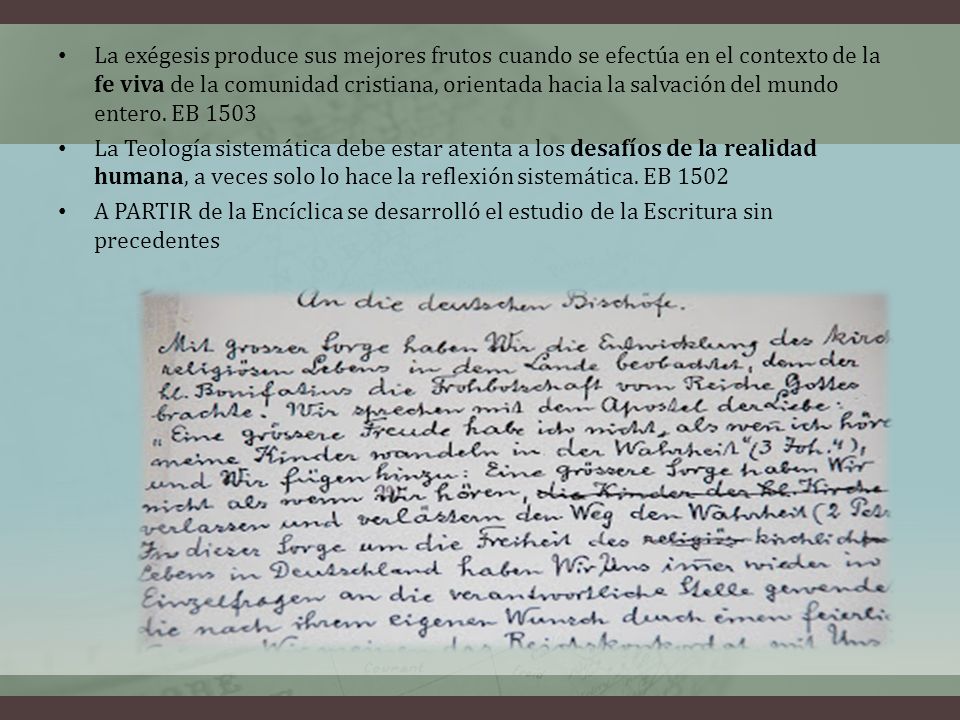 • La exégesis produce sus mejores frutos cuando se efectúa en el contexto de la
fe viva de la comunidad cristiana, orientada hacia la salvación del mundo
entero. EB 1503
• La Teología sistemática debe estar atenta a los desafíos de la realidad
humana, a veces solo lo hace la reflexión sistemática. EB 1502
• A PARTIR de la Encíclica se desarrolló el estudio de la Escritura sin
precedentes
An die deutschen Bischöfe.
Mit grosser Sorge haben Wir die Entwicklung des kirch
religiösen Lebens in dem Lande beobachtet, dem der
hl. Bonifatius die Frohbotschaft vom Reiche Gottes
brachte. Wir sprechen mit dem Apostel der Liebe:
„Eine grössere Freude habe ich nicht, als wen̄ ich höre
meine Kinder wandeln in der Wahrheit“ (3 Joh. 4),
und Wir fügen hinzu: Eine grössere Sorge haben Wir
nicht als wenn Wir hören, die Kinder der hl. Kirche
verlassen und verlästern den Weg den Wahrheit (2 Petr
In dieser Sorge um die Freiheit des religiös kirchlich
Lebens in Deutschland haben Wir Uns im̄er wieder in
Einzelfragen an die verantwortliche Stelle gewende
die nach ihrem eigenen Wunsch durch einen feierli
das Reichskonkordat mit Uns
Courant